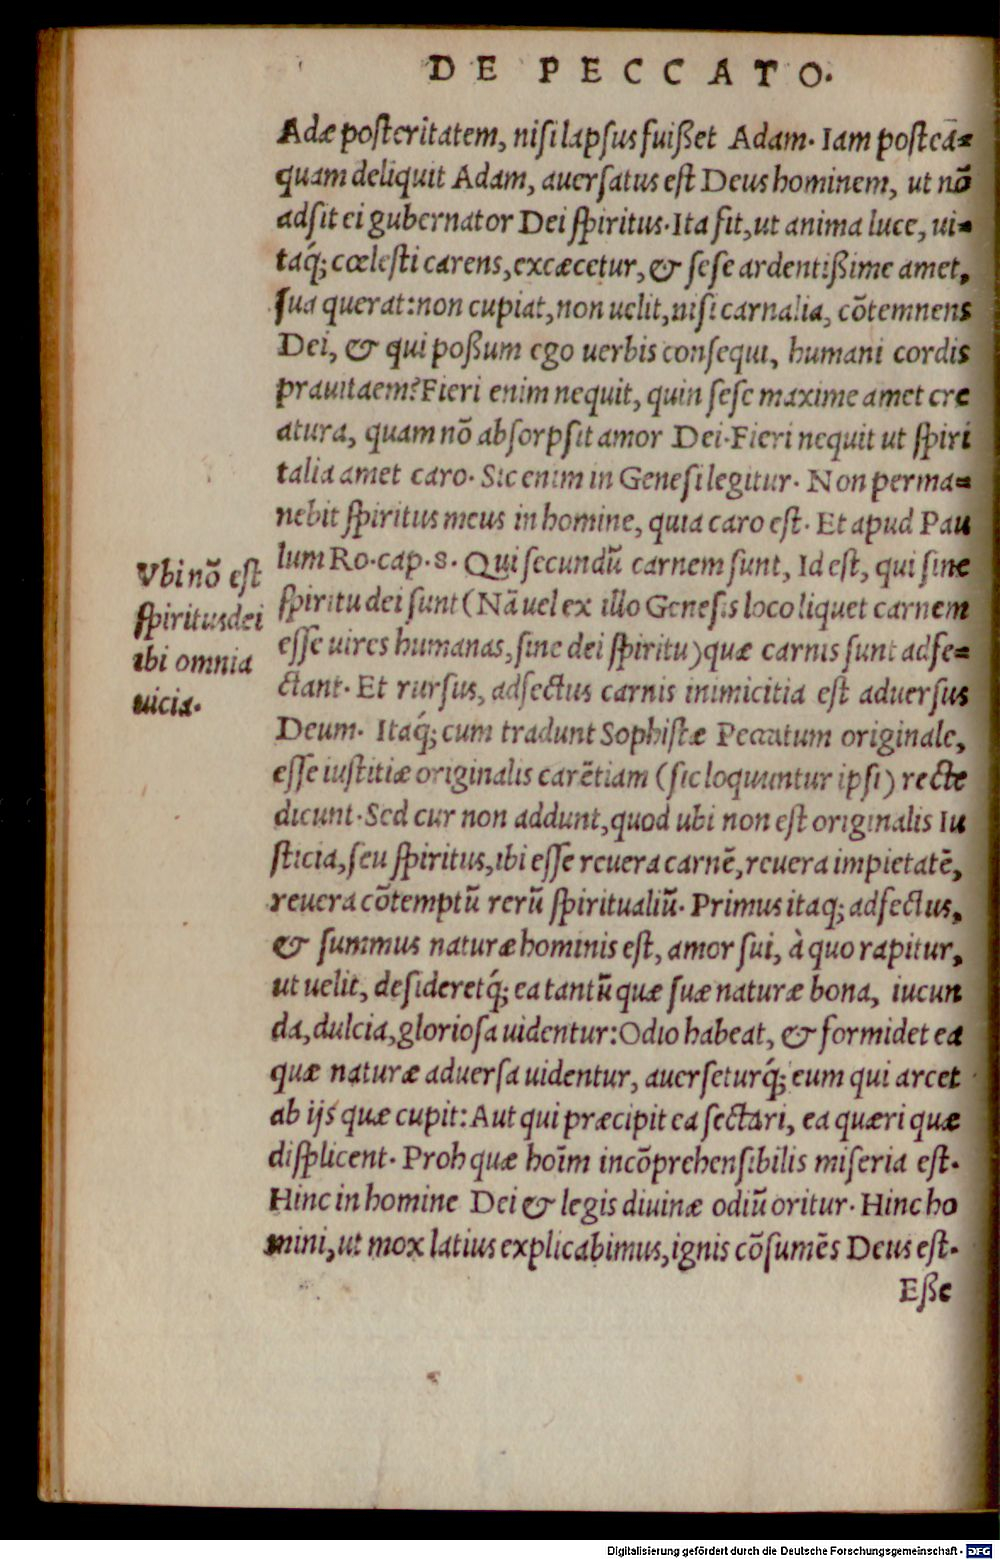 DE PECCATO.
Adæ posteritatem, nisi lapsus fuißet Adam. Iam posteā=
quam deliquit Adam, auersatus est Deus hominem, ut nō
adsit ei gubernator Dei spiritus. Ita fit, ut anima luce, ui=
taq́; cœlesti carens, excæcetur, & sese ardentißime amet,
sua querat: non cupiat, non uelit, nisi carnalia, cōtemnens
Dei, & qui poßum ego uerbis consequi, humani cordis
prauitaem? Fieri enim nequit, quin sese maxime amet cre
atura, quam nō absorpsit amor Dei. Fieri nequit ut spiri
talia amet caro. Sic enim in Genesi legitur. Non perma=
nebit spiritus meus in homine, quia caro est. Et apud Pau
lum Ro. cap. 8. Qui secundū carnem sunt, Id est, qui sine
spiritu dei sunt (Nā uel ex illo Genesis loco liquet carnem
esse uires humanas, sine dei spiritu) quæ carnis sunt adfe=
ctant. Et rursus, adfectus carnis inimicitia est aduersus
Deum. Itaq́; cum tradunt Sophistæ Peccatum originale,
esse iustitiæ originalis carētiam (sic loquuntur ipsi) recte
dicunt. Sed cur non addunt, quod ubi non est originalis Iu
sticia, seu spiritus, ibi esse reuera carnē, reuera impietatē,
reuera cōtemptū rerū spiritualiū. Primus itaq; adfectus,
& summus naturæ hominis est, amor sui, à quo rapitur,
ut uelit, desideretq́; ea tantū quæ suæ naturæ bona, iucun
da, dulcia, gloriosa uidentur: Odio habeat, & formidet ea
quæ naturæ aduersa uidentur, auerseturq́; eum qui arcet
ab ijs quæ cupit: Aut qui præcipit ea sectari, ea quæri quæ
displicent. Proh quæ hoīm incōprehensibilis miseria est.
Hinc in homine Dei & legis diuinæ odiū oritur. Hinc ho
mini, ut mox latius explicabimus, ignis cōsumēs Deus est.
Eße
Vbi nō est
spiritus dei
ibi omnia
uicia.
Digitalisierung gefördert durch die Deutsche Forschungsgemeinschaft - DFG